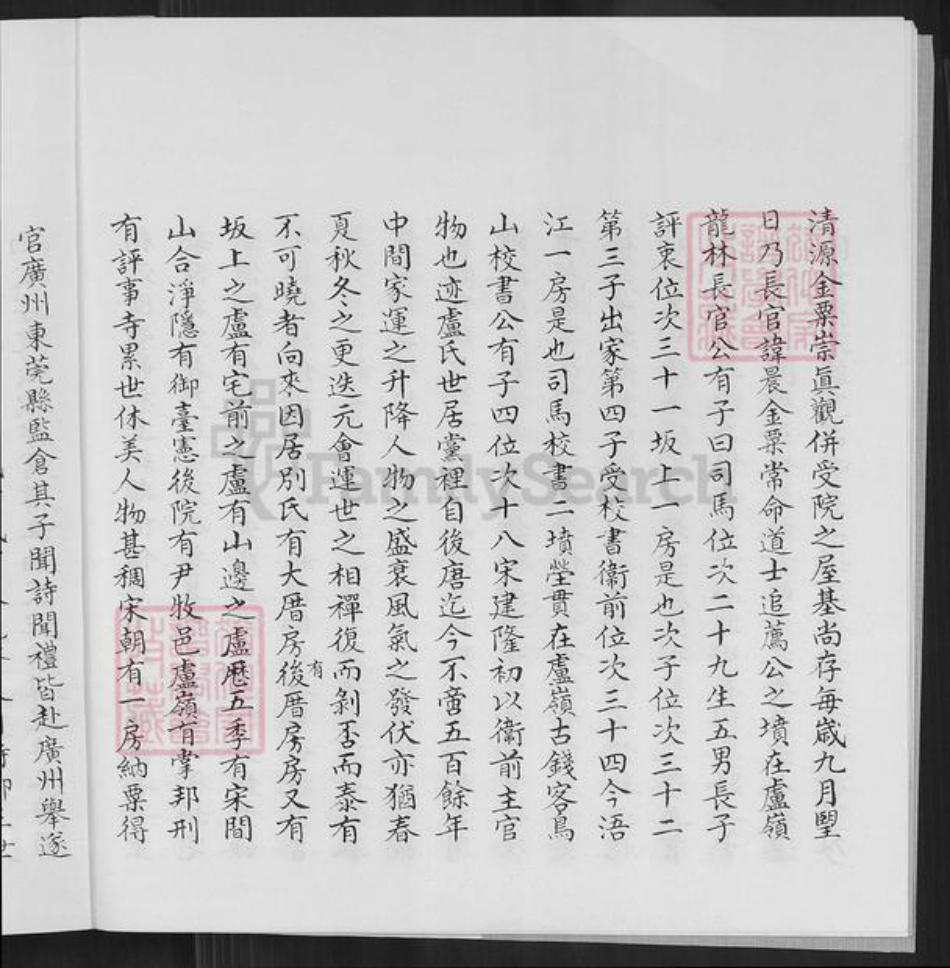 清源金粟崇真觀併受院之屋基尚存每歲九月朢
日乃長官諱晨金粟常命道士追薦公之墳在盧嶺
龍林長官公有子曰司馬位次二十九生五男長子
評衷位次三十一坂上一房是也次子位次三十二
第三子出家第四子受校書衛前位次三十四今浯
江一房是也司馬校書二墳塋貫在盧嶺古錢客鳥
山校書公有子四位次十八宋建隆初以衛前主官
物也迹盧氏世居黨裡自後唐迄今不啻五百餘年
中間家運之升降人物之盛衰風氣之發伏亦猶春
夏秋冬之更迭元會運世之相禪復而剝否而泰有
不可曉者向來因居別氏有大厝房後有厝房房又有
坂上之盧有宅前之盧有山邊之盧歷五季有宋間
山合淨隱有御臺憲後院有尹牧邑盧嶺有掌邦刑
有評事寺累世休美人物甚稠宋朝有一房納粟得
官廣州東莞縣監倉其子聞詩聞禮皆赴廣州舉遂
FamilySearch